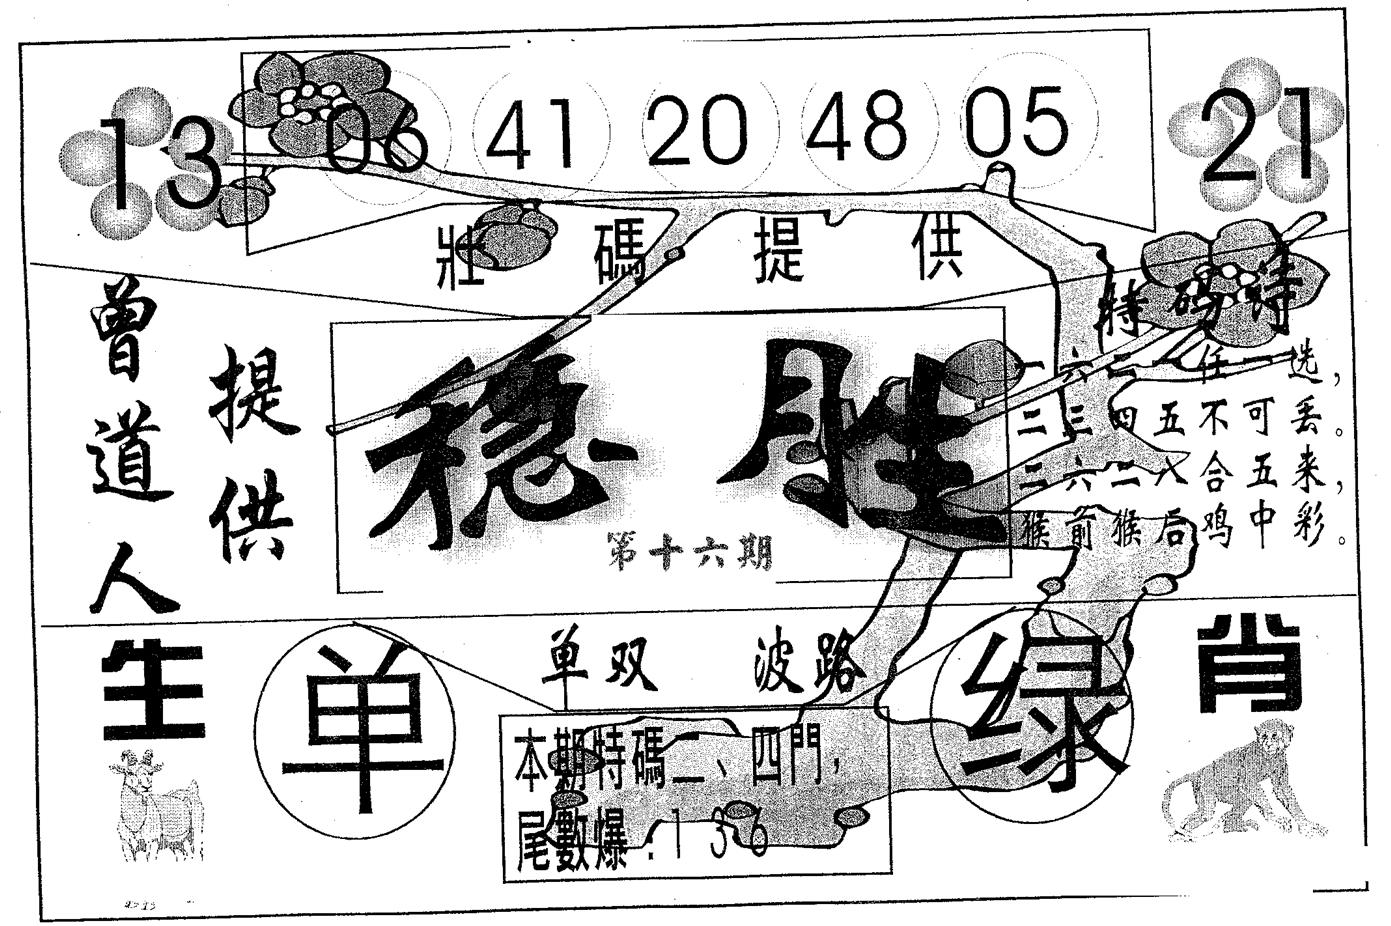 13 06 41 20 48 05 21
壯碼提供
曾道人
提供
稳胜
第十六期
特码诗
一六二一任一选，
二三四五不可丢。
二六二八合五来，
猴前猴后鸡中彩。
生肖
单
单双 波路
绿
本期特碼二、四門，
尾數爆：136